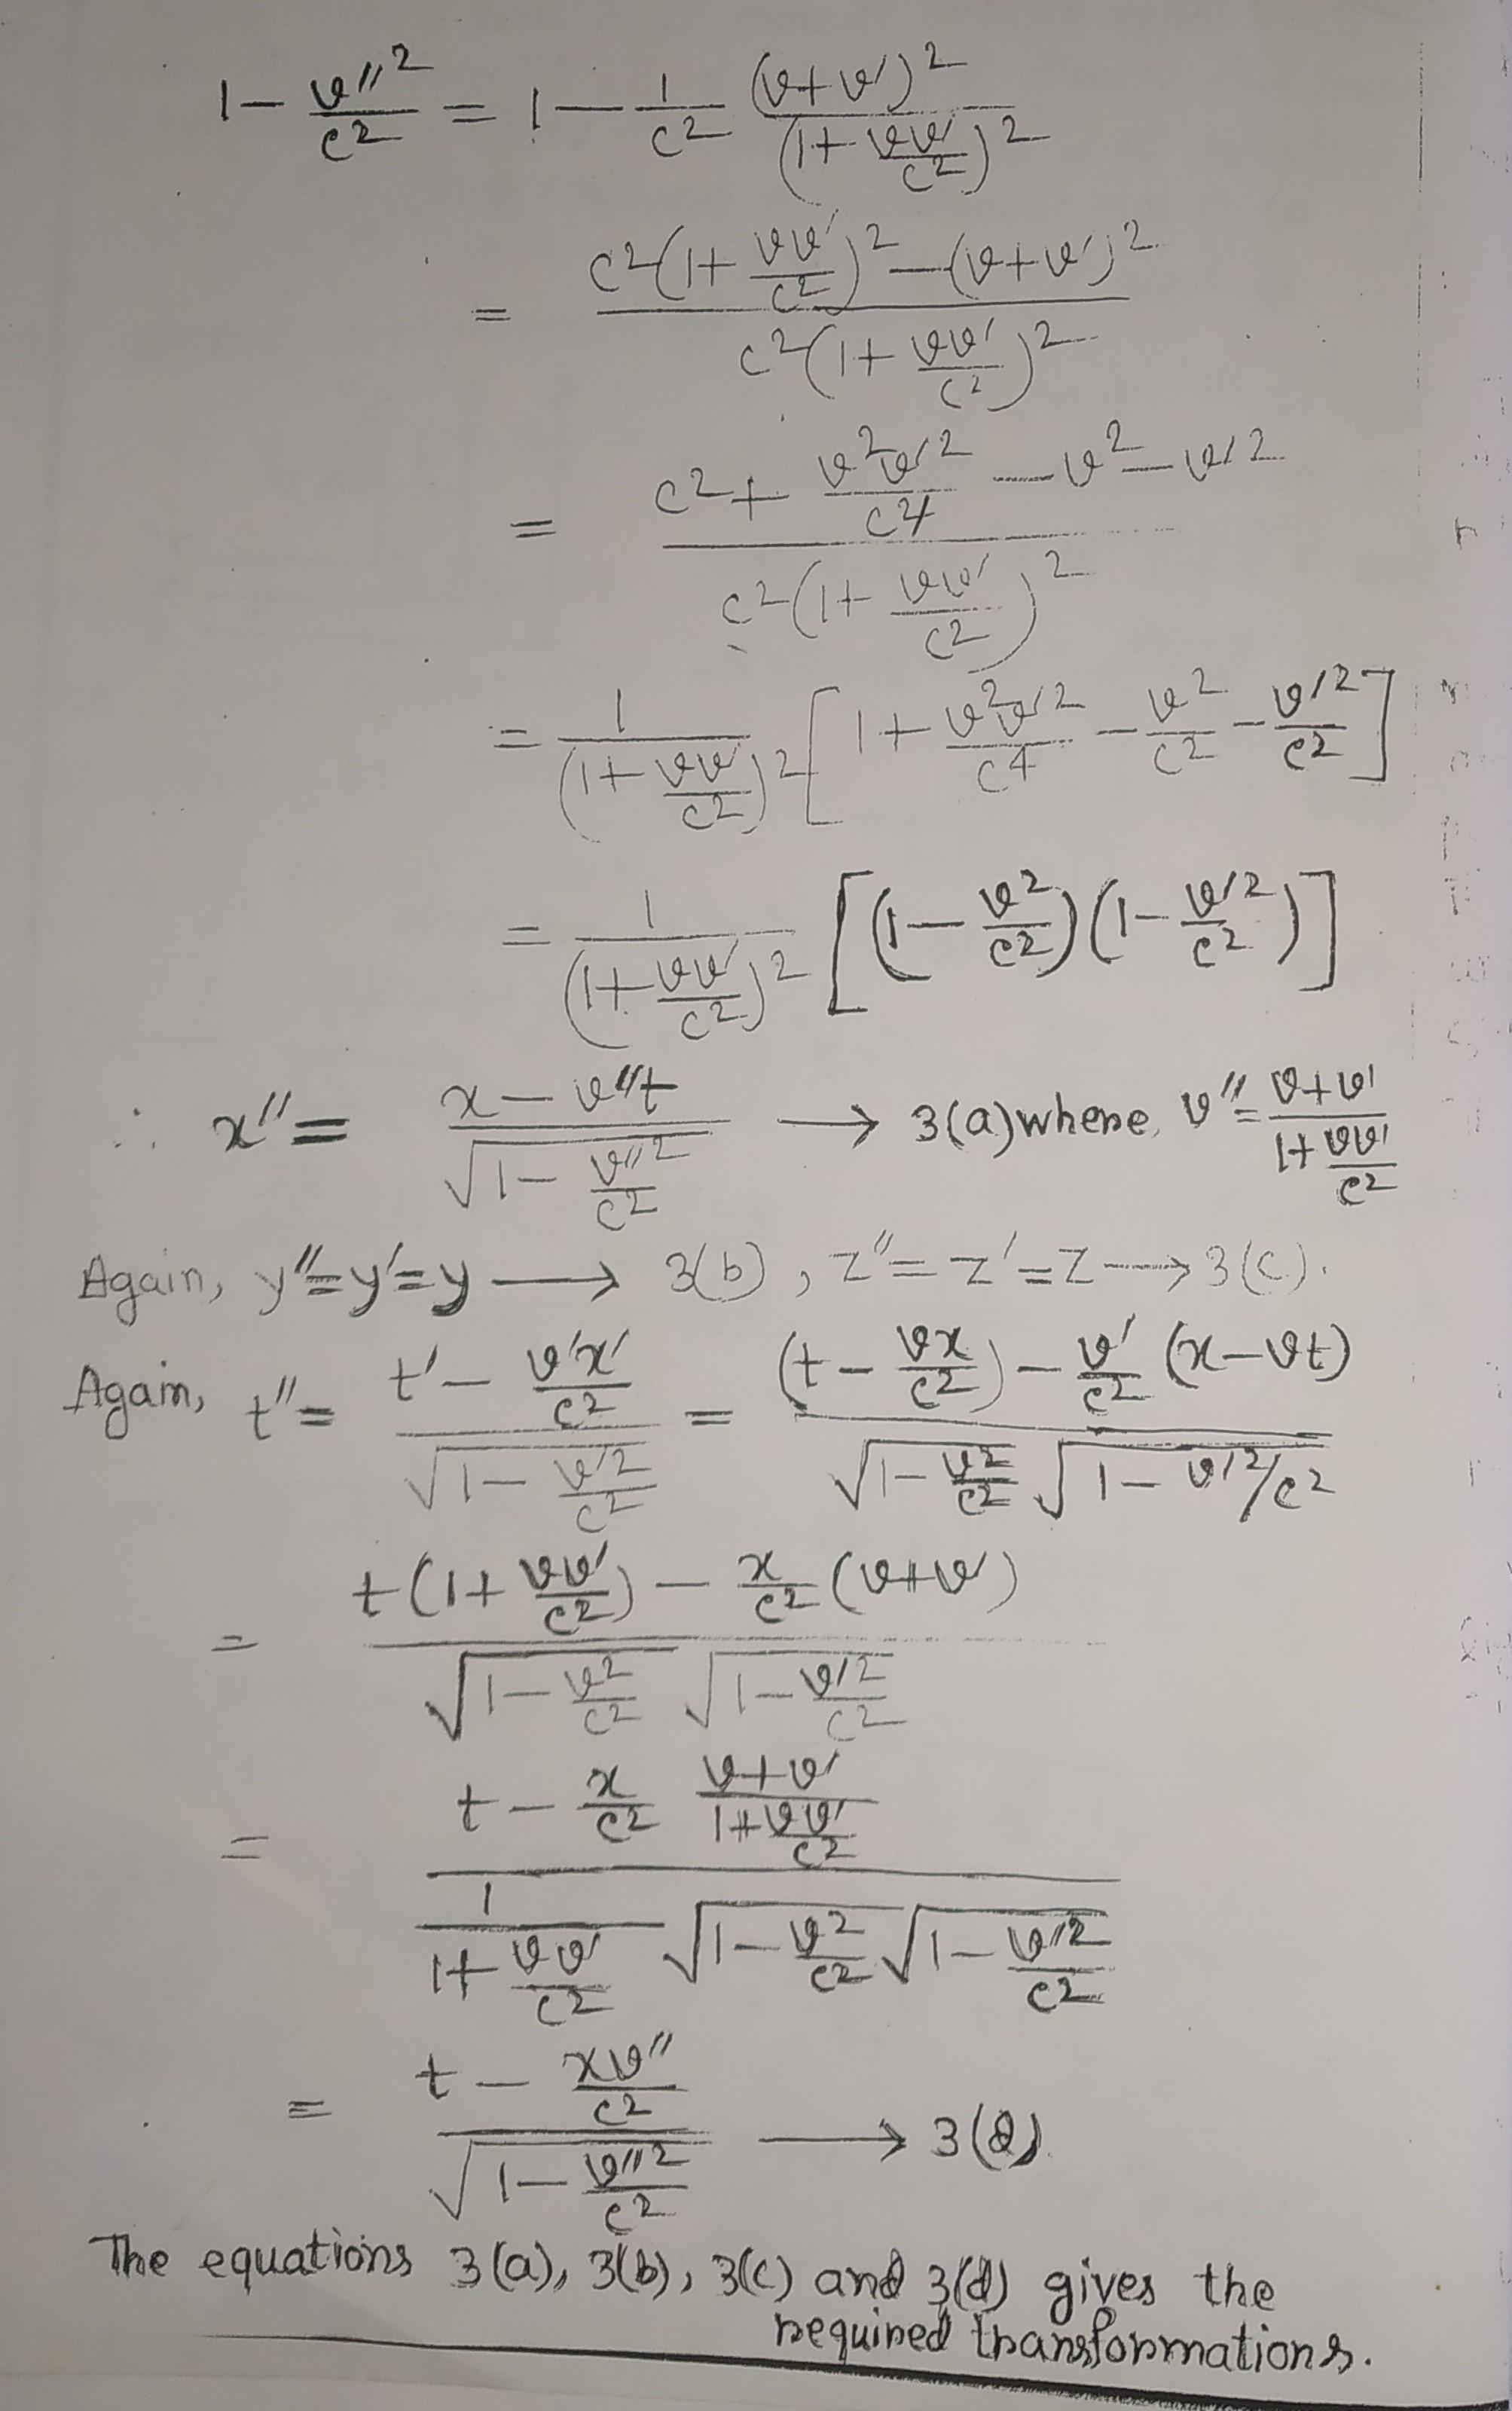 1 - v''²/c² = 1 - 1/c² (v+v')²/(1+vv'/c²)²
= c²(1+vv'/c²)² - (v+v')² / c²(1+vv'/c²)²
= c² + v²v'²/c⁴ - v² - v'² / c²(1+vv'/c²)²
= 1/(1+vv'/c²)² [1 + v²v'²/c⁴ - v²/c² - v'²/c²]
= 1/(1+vv'/c²)² [(1 - v²/c²)(1 - v'²/c²)]
∴ x'' = x - v''t / √1 - v''²/c² → 3(a) where, v'' = v+v' / 1+vv'/c²
Again, y''=y'=y → 3(b), z''=z'=z → 3(c).
Again, t'' = t' - v'x'/c² / √1 - v'²/c² = (t - vx/c²) - v'/c² (x-vt) / √1 - v²/c² √1 - v'²/c²
= t(1+vv'/c²) - x/c² (v+v') / √1 - v²/c² √1 - v'²/c²
= t - x/c² v+v'/1+vv'/c² / 1/1+vv'/c² √1 - v²/c² √1 - v'²/c²
= t - xv''/c² / √1 - v''²/c² → 3(d)
The equations 3(a), 3(b), 3(c) and 3(d) gives the
required transformations.